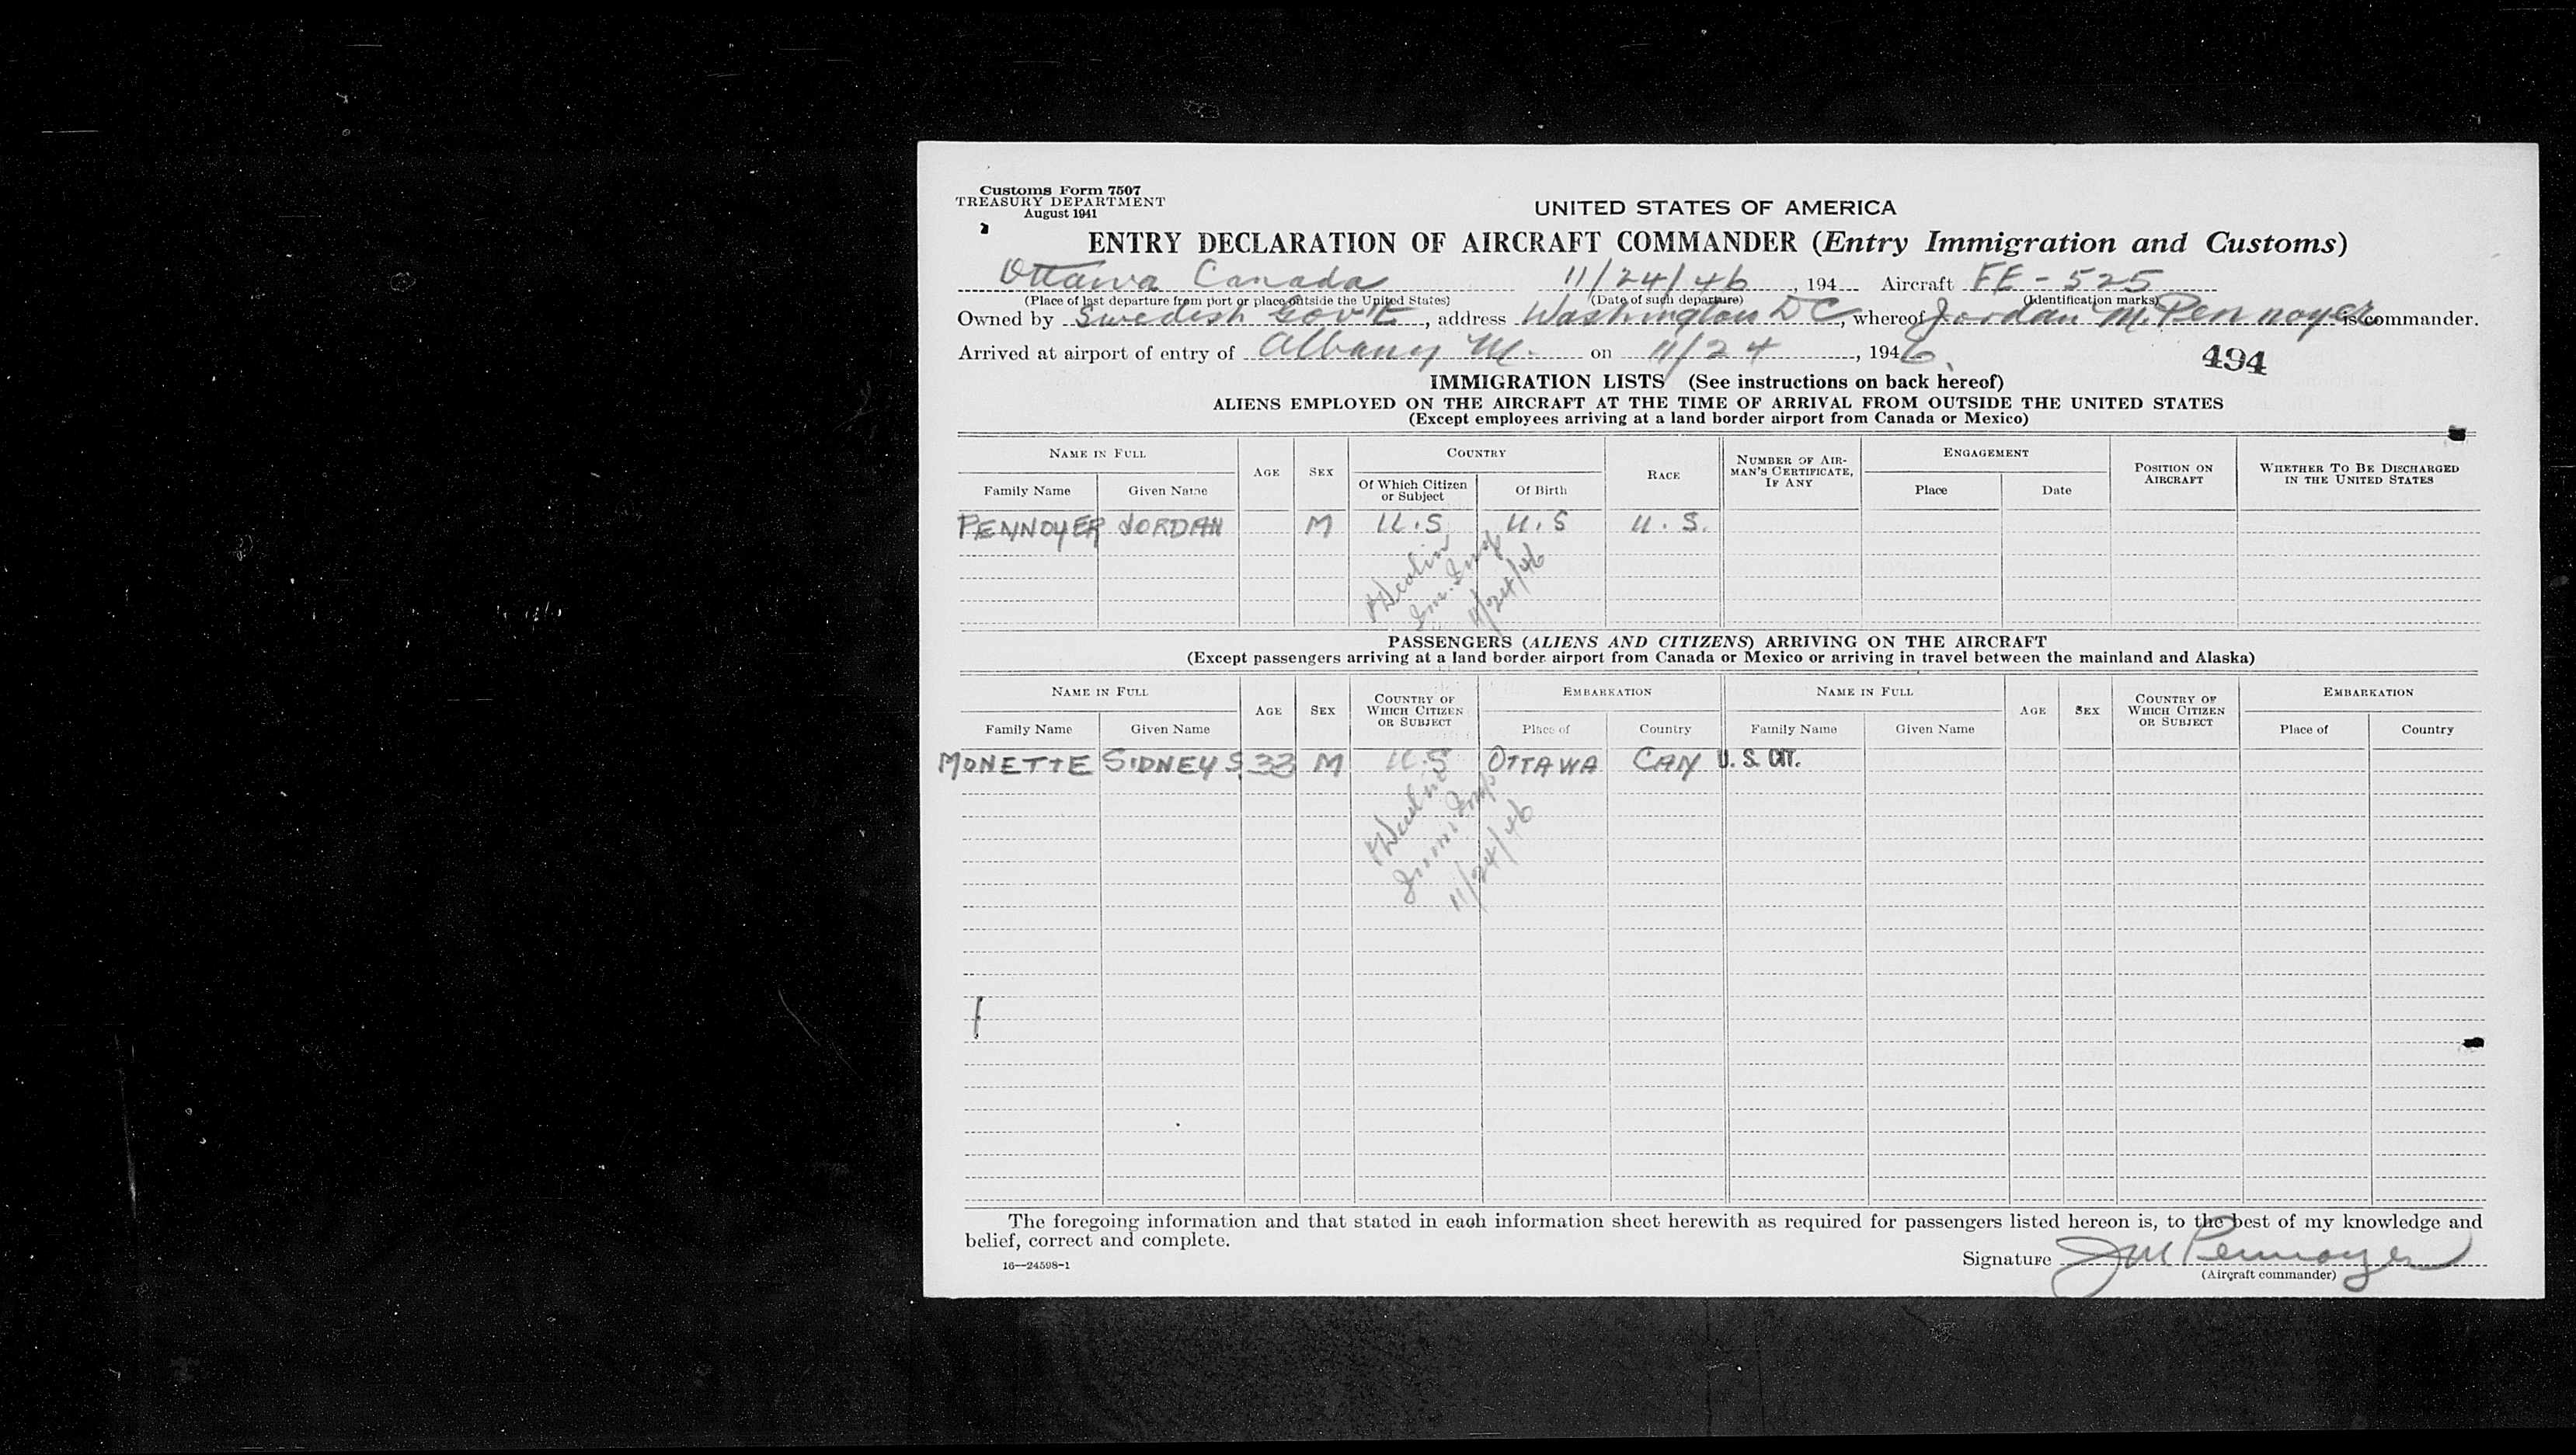 Customs Form 7507
TREASURY DEPARTMENT
August 1941
UNITED STATES OF AMERICA
ENTRY DECLARATION OF AIRCRAFT COMMANDER (Entry Immigration and Customs)
Ottawa Canada 11/24/46, 194 Aircraft FE-525
(Place of last departure from port or place outside the United States) (Date of such departure) (Identification marks)
Owned by Swedish Gov't, address Washington DC, whereof Jordan M. Pennoyer is commander.
Arrived at airport of entry of Albany on 11/24, 1946.
494
IMMIGRATION LISTS (See instructions on back hereof)
ALIENS EMPLOYED ON THE AIRCRAFT AT THE TIME OF ARRIVAL FROM OUTSIDE THE UNITED STATES
(Except employees arriving at a land border airport from Canada or Mexico)
NAME IN FULL AGE SEX COUNTRY RACE NUMBER OF AIRMAN'S CERTIFICATE, IF ANY ENGAGEMENT POSITION ON AIRCRAFT WHETHER TO BE DISCHARGED IN THE UNITED STATES
Family Name Given Name Of Which Citizen or Subject Of Birth Place Date
PENNOYER JORDAN M U.S U.S U.S.
Im. Insp
11/24/46
PASSENGERS (ALIENS AND CITIZENS) ARRIVING ON THE AIRCRAFT
(Except passengers arriving at a land border airport from Canada or Mexico or arriving in travel between the mainland and Alaska)
NAME IN FULL AGE SEX COUNTRY OF WHICH CITIZEN OR SUBJECT EMBARKATION NAME IN FULL AGE SEX COUNTRY OF WHICH CITIZEN OR SUBJECT EMBARKATION
Family Name Given Name Place of Country Family Name Given Name Place of Country
MONETTE SIDNEY S 33 M U.S OTTAWA CAN U. S. CIT.
Immi Insp
11/24/46
The foregoing information and that stated in each information sheet herewith as required for passengers listed hereon is, to the best of my knowledge and
belief, correct and complete.
Signature J M Pennoyer
16—24598-1
(Aircraft commander)